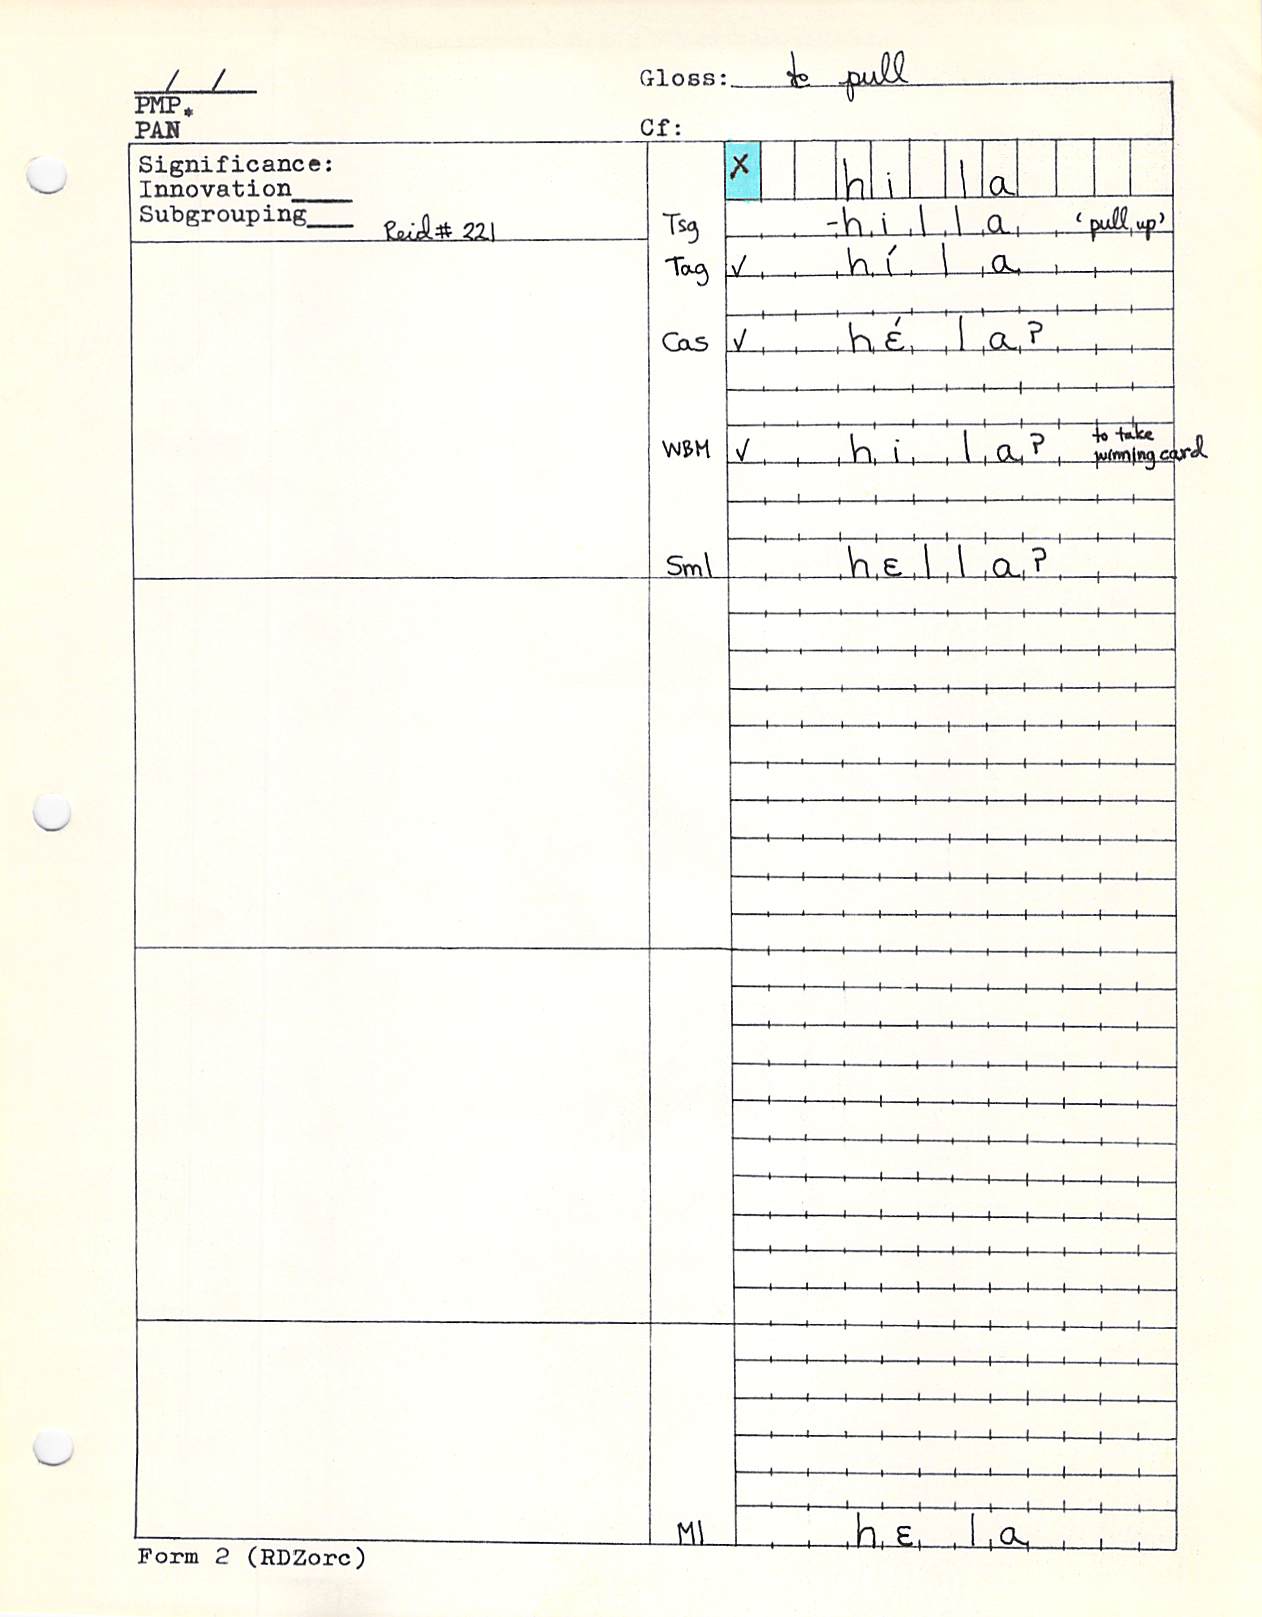 / /
Gloss: to pull
PMP*
PAN
Cf:
Significance:
Innovation
Subgrouping
Reid# 221
X hi la
Tsg -hilla 'pull up'
Tag ✓ hí la
Cas ✓ hέ́ laʔ
WBM ✓ hi laʔ to take
winning card
Sml hεllaʔ
Ml hε la
Form 2 (RDZorc)